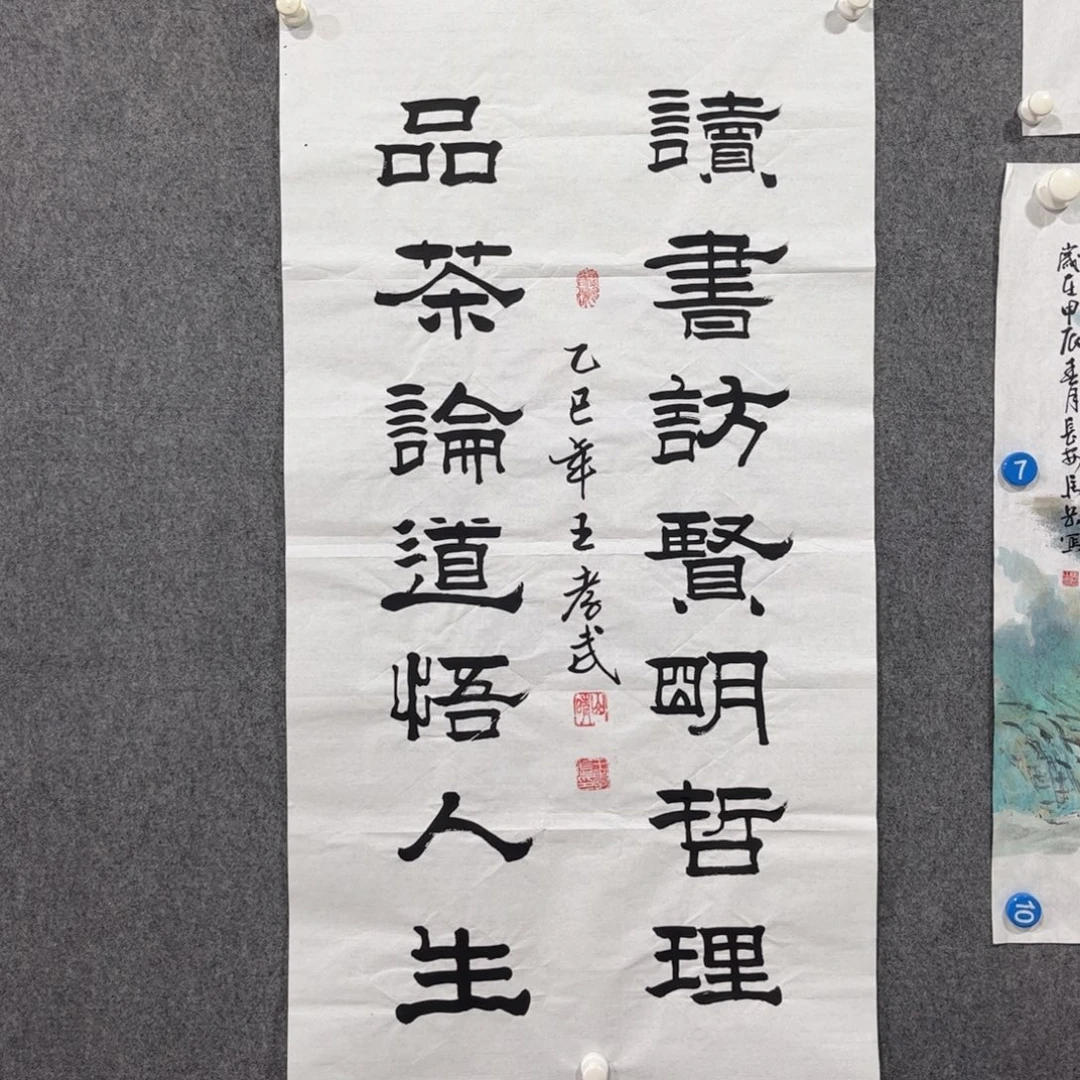 讀書訪賢明哲理
品茶論道悟人生
乙巳年王孝武
歲在甲辰春月長安
7
10